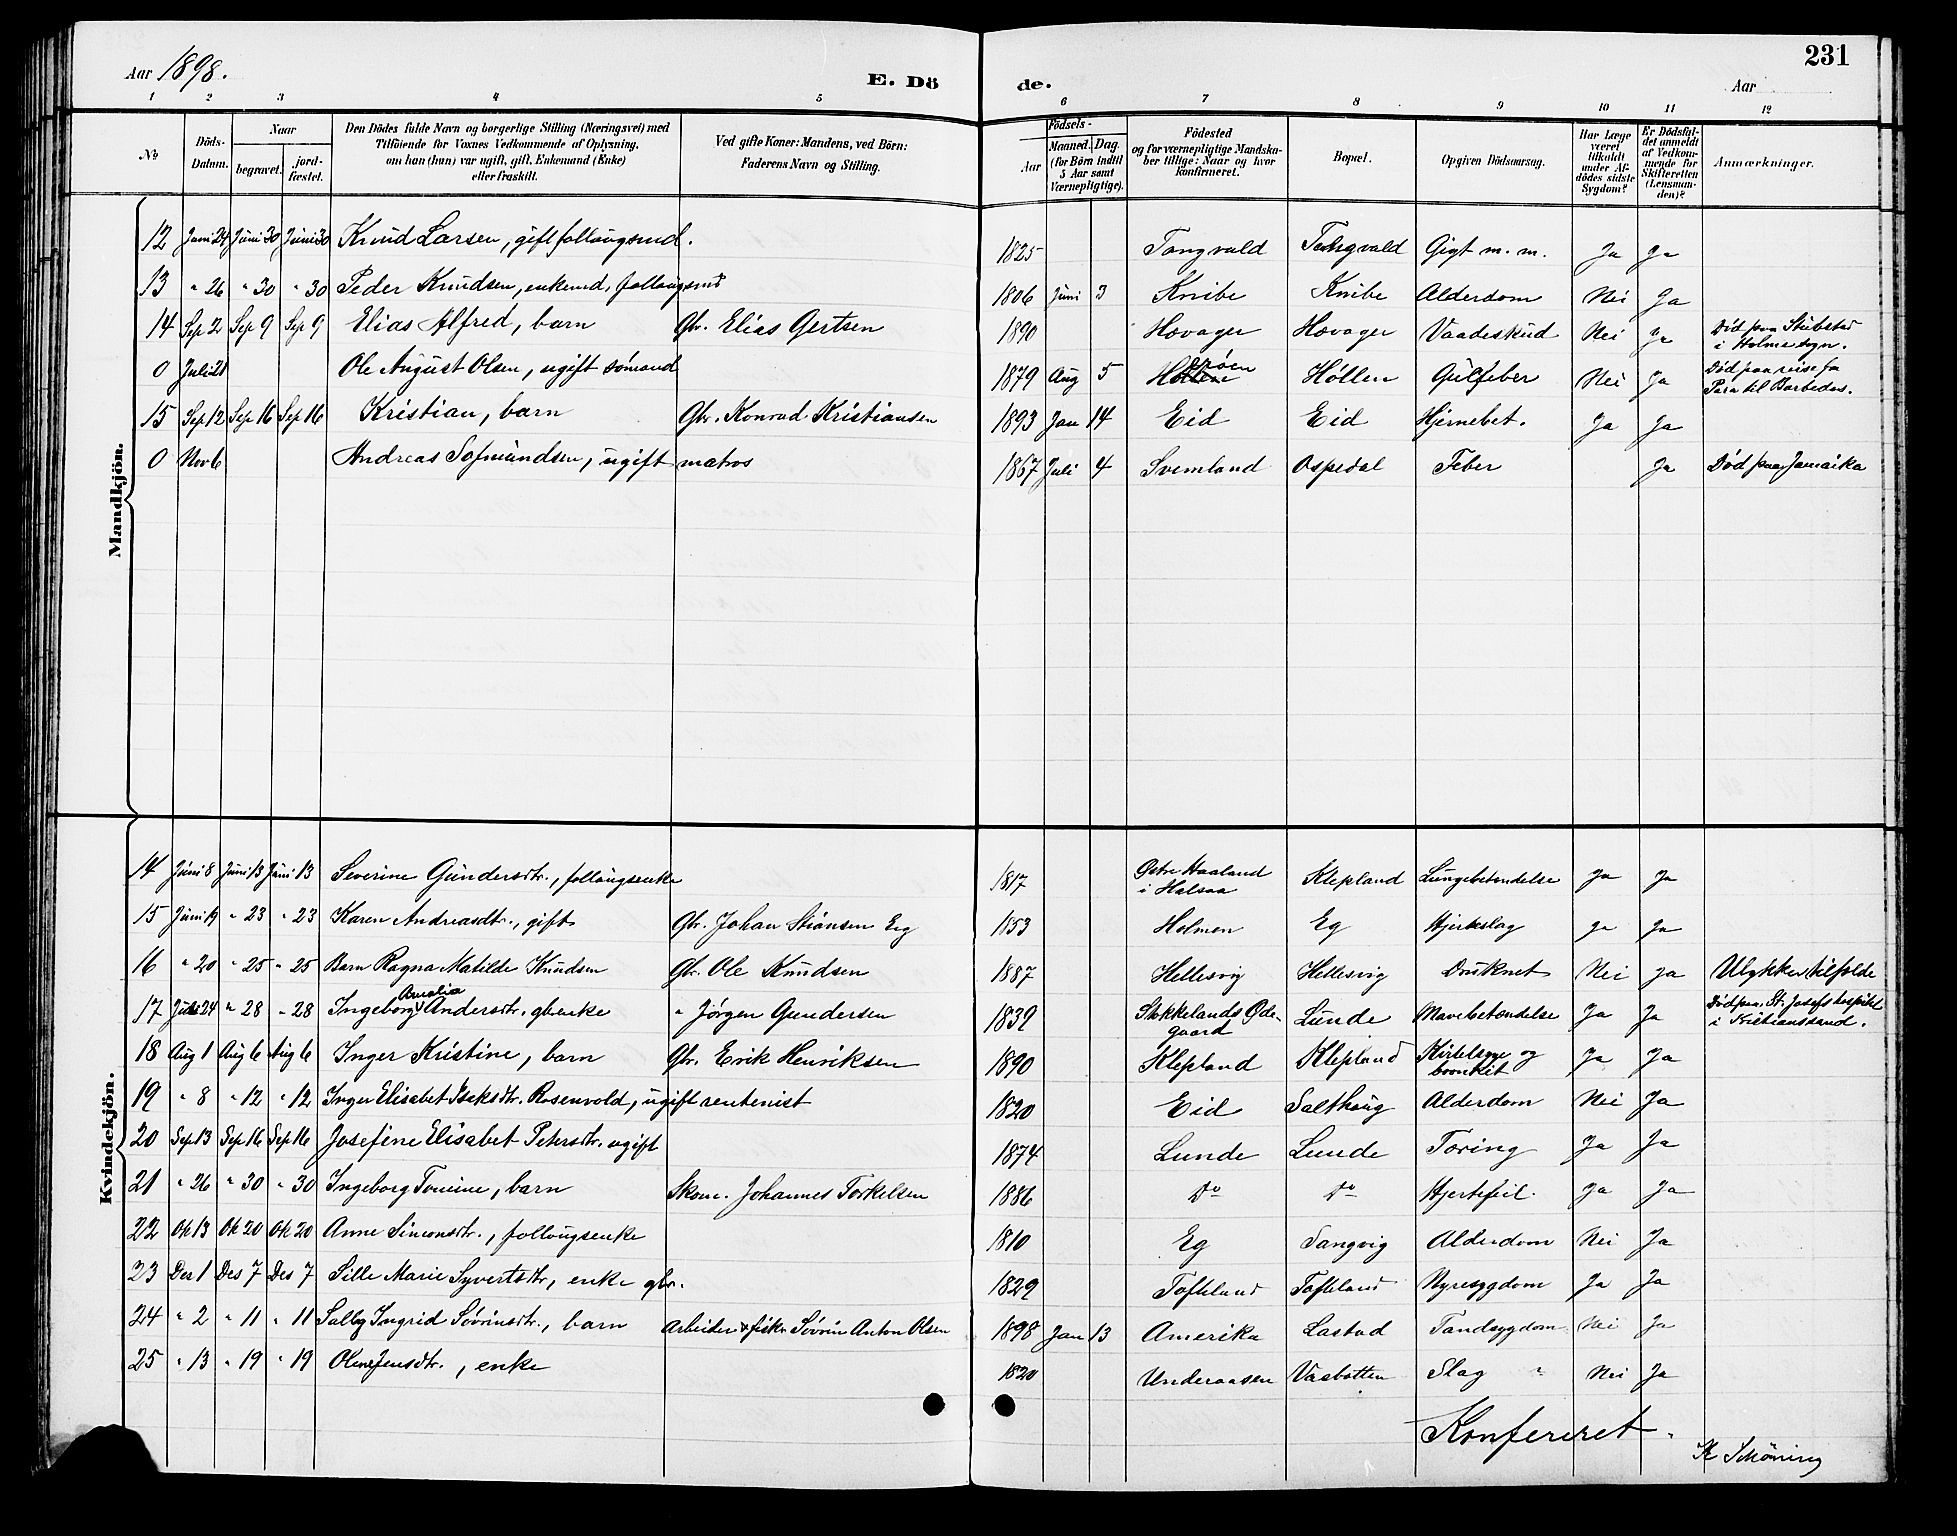 Aar 1898.
E. Dö
de.
Aar
231
1 2 3 4 5 6 7 8 9 10 11 12
No
Döds-Datum.
Naar
begravet.
jord-fæstet.
Den Dödes fulde Navn og borgerlige Stilling (Næringsvei) med
Tilföiende for Voxnes Vedkommende af Oplysning,
om han (hun) var ugift, gift, Enkemand (Enke)
eller fraskilt.
Ved gifte Koner: Mandens, ved Börn:
Faderens Navn og Stilling.
Födsels-
Aar
Maaned. Dag.
(for Börn indtil
5 Aar samt
Værnepligtige).
Födested
og for værnepligtige Mandska-
ber tillige: Naar og hvor
konfirmeret.
Bopæl.
Opgiven Dödsaarsag.
Har Læge
været
tilkaldt
under Af-
dödes sidste
Sygdom?
Er Dödsfal-
det anmeldt
af Vedkom-
mende for
Skifteretten
(Lensman-
den)?
Anmærkninger.
Mandkjön.
12 Juni 24 Juni 30 Juni 30 Knud Larsen, gift follaugsmd. 1825 Tangvald Tangvald Gigt m. m. Ja Ja
13 " 26 " 30 " 30 Peder Knudsen, enkemd. follaugsmd 1806 Juni 3 Knibe Knibe Alderdom Nei Ja
14 Sep 2 Sep 9 Sep 9 Elias Alfred, barn Gbr. Elias Gertsen 1890 Hovager Hovager Vaadeskud Nei Ja Död paa Stubstad
i Holme sogn.
0 Juli 21 Ole August Olsen, ugift sömand 1879 Aug 5 Höllen Gülfeber Nei Ja Död paa reise fa
Para til Barbados.
15 Sep 12 Sep 16 Sep 16 Kristian, barn Gbr. Konrad Kristiansen 1893 Jan 14 Eid Eid Hjernebet. Ja Ja
0 Nov 6 Andreas Sofmundsen, ugift matros 1867 Juli 4 Svemland Ospedal Feber Ja Död paa Jamaika
Kvindekjön.
14 Juni 8 Juni 13 Juni 13 Severine Gundersdtr., follaugsenke 1817 Østre Haaland
i Halsaa Klepland Lungebetendelse Ja Ja
15 Juni 19 " 23 " 23 Karen Andreasdtr., gift Gbr. Johan Stiansen Eg 1853 Holmen Eg Hjerteslag Ja Ja
16 " 20 " 25 " 25 Barn Ragna Matilde Knudsen Gbr. Ole Knudsen 1887 Hellesvig Hellesvig Druknet Nei Ja Ulykkestilfelde
17 Juli 24 " 28 " 28 Ingeborg Amalia Andersdtr. gbenke " Jörgen Gundersen 1839 Stokkelands Øde-
gaard Lunde Mavebetendelse Ja Ja Död paa St. Josefs hospital
i Kristianssand.
18 Aug 1 Aug 6 Aug 6 Inger Kristine, barn Gbr. Erik Henriksen 1890 Klepland Klepland Kirtelsyge og
bronkit Ja Ja
19 " 8 " 12 " 12 Inger Elisabet Isaksdtr. Rosenvold, ugift rentenist 1820 Eid Salthaug Alderdom Nei Ja
20 Sep 13 Sep 16 Sep 16 Josefine Elisabet Petersdtr. ugift 1874 Lunde Lunde Tæring Ja Ja
21 " 26 " 30 " 30 Ingeborg Tomine, barn Skom. Johannes Torkelsen 1886 Do Do Hjertefeil. Ja Ja
22 Ok 13 Ok 20 Ok 20 Anne Simonsdtr., follaugsenke 1810 Eg Sangvig Alderdom Nei Ja
23 Des 1 Des 7 Des 7 Sille Marie Syvertsdtr, enke gbr. 1829 Tofteland Tofteland Nyresygdom Ja Ja
24 " 2 " 11 " 11 Salby Ingrid Sörinsdtr., barn Arbeider & fisker Sörin Anton Olsen 1898 Jan 13 Amerika Lastad Tandsygdom Nei Ja
25 " 13 " 19 " 19 Olene Jensdtr., enke 1820 Underaasen Vasbotten Slag " Nei Ja
Konfereret.
K Schöning